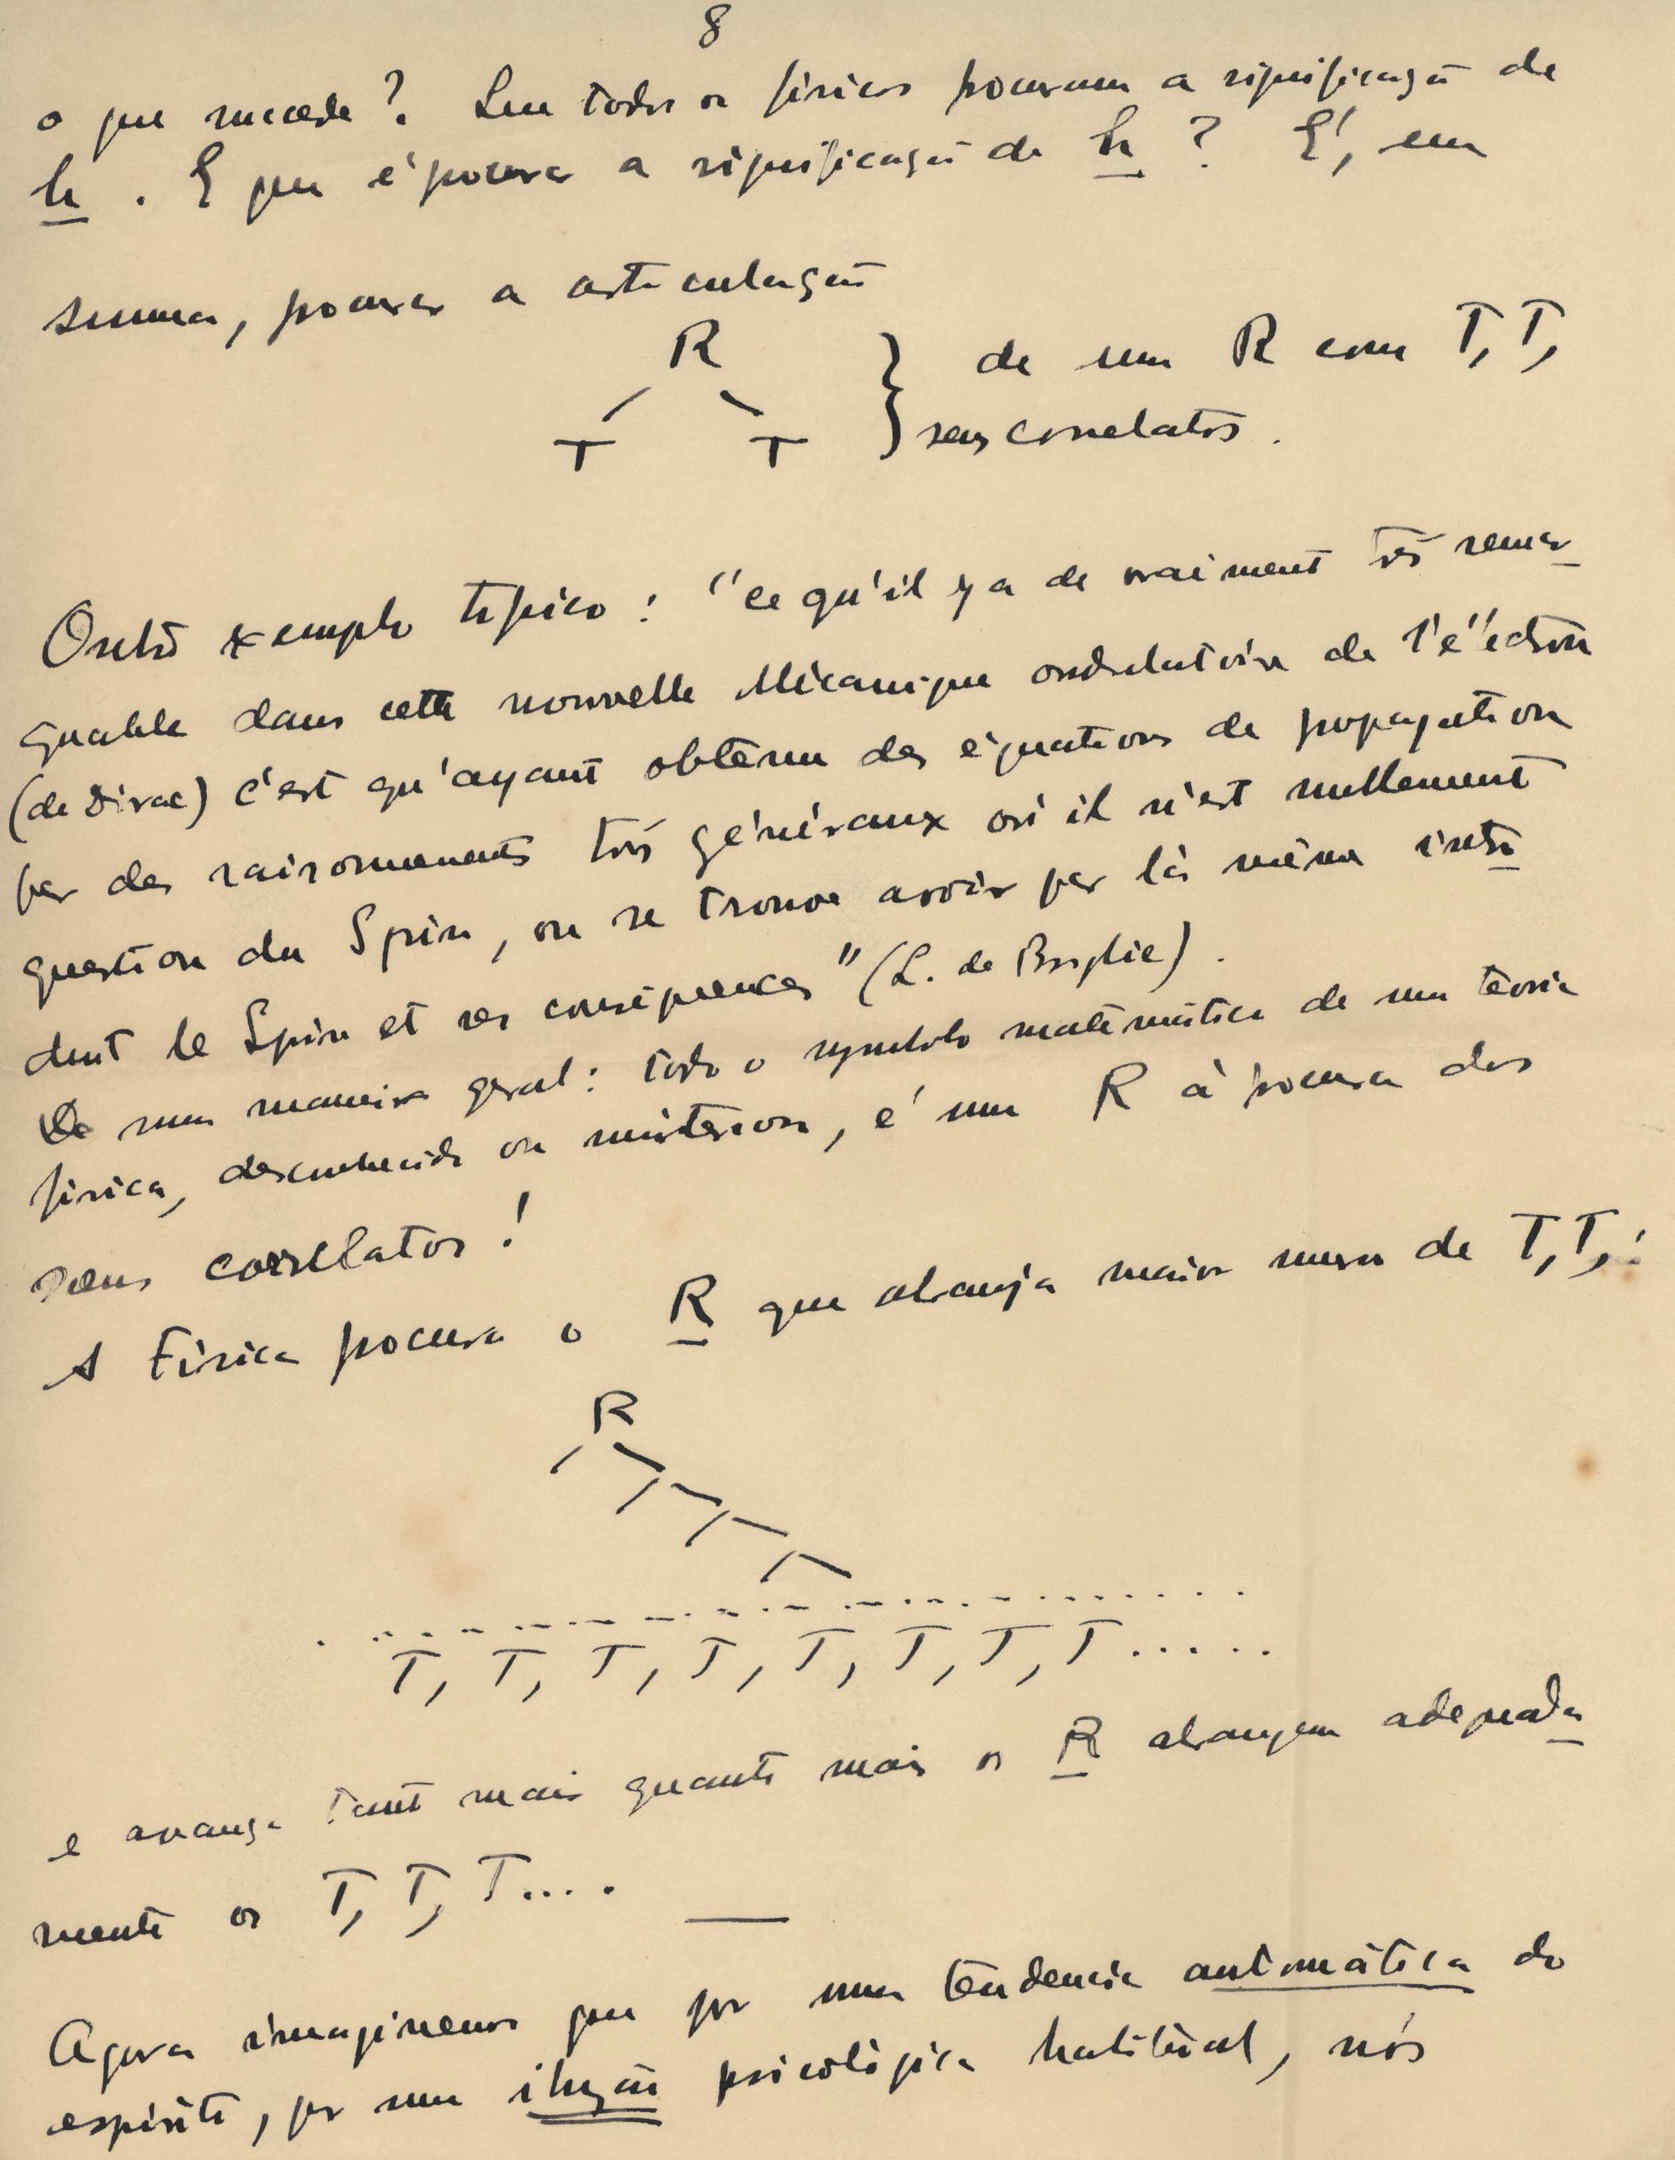 8
o que sucede? Que todos os físicos procuram a significação de
h. E que é procurar a significação de h? É, em
summa, procurar a articulação
R
T T
} de um R com T, T,
seus correlatos.
Outro exemplo tipico: "ce qu'il y a de vraiment très remar-
quable dans cette nouvelle Mécanique ondulatoire de l'électron
(de Dirac) c'est qu'ayant obtenu des équations de propagation
par des raisonnements très généraux où il n'est nullement
question du Spin, on se trouve avoir par là même intro-
duit le Spin et ses conséquences" (L. de Broglie).
De uma maneira geral: todo o symbolo matemático de uma teoria
física, desconhecido ou misterioso, é um R à procura dos
seus correlatos!
A Física procura o R que abranja maior numero de T, T,:
R
T, T, T, T, T, T, T, T.....
e avança tanto mais quanto mais os R abrangem adequada-
mente os T, T, T....
Agora imaginemos que por uma tendencia automática do
espirito, por uma ilusão psicológica habitual, nós